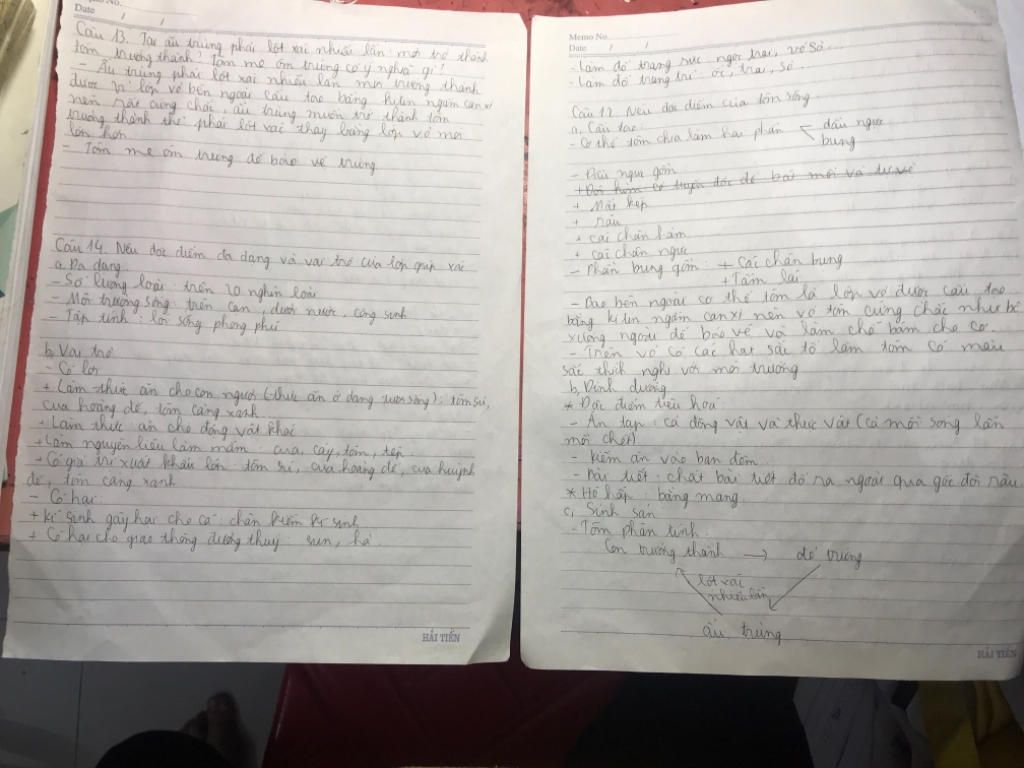 No.
Date / /
Câu 13. Tại ấu trùng phải lột xác nhiều lần mới trở thành
tôm trưởng thành? Tôm mẹ ôm trứng có ý nghĩa gì?
- Ấu trùng phải lột xác nhiều lần mới trưởng thành
được vì lớp vỏ bên ngoài cấu tạo bằng kitin ngấm canxi
nên rất cứng chắc, ấu trùng muốn trở thành tôm
trưởng thành thì phải lột xác thay bằng lớp vỏ mới
lớn hơn
- Tôm mẹ ôm trứng để bảo vệ trứng
Câu 14. Nêu đặc điểm đa dạng và vai trò của lớp giáp xác
a. Đa dạng
- Số lượng loài: trên 20 nghìn loài
- Môi trường sống: trên cạn, dưới nước, cộng sinh
- Tập tính: lối sống phong phú
b. Vai trò
- Có lợi
+ Làm thức ăn cho con người (thức ăn ở dạng tươi sống): tôm sú,
cua hoàng đế, tôm càng xanh
+ Làm thức ăn cho động vật khác
+ Làm nguyên liệu làm mắm: cua, cáy, tôm, tép
+ Có giá trị xuất khẩu lớn: tôm sú, cua hoàng đế, cua huỳnh
đế, tôm càng xanh
- Có hại:
+ kí sinh gây hại cho cá: chân kiếm kí sinh
+ Có hại cho giao thông đường thủy: sun, hà
HẢI TIẾN
Memo No.
Date / /
- Làm đồ trang sức: ngọc trai, vỏ sò...
- làm đồ trang trí: ốc, trai, sò...
Câu 12. Nêu đặc điểm của tôm sông
a. Cấu tạo:
- Cơ thể tôm chia làm hai phần đầu ngực
bụng
- Đầu ngực gồm
+ Đôi kìm có tuyến độc để bắt mồi và tự vệ
+ Mắt kép
+ râu
+ các chân hàm
+ các chân ngực
- Phần bụng gồm: + Các chân bụng
+ Tấm lái
- Bao bên ngoài cơ thể tôm là lớp vỏ được cấu tạo
bằng kitin ngấm canxi nên vỏ tôm cứng chắc như bộ
xương ngoài để bảo vệ và làm chỗ bám cho cơ.
- Trên vỏ có các hạt sắc tố làm tôm có màu
sắc thích nghi với môi trường
b. Dinh dưỡng
* Đặc điểm tiêu hoá
- Ăn tạp: cả động vật và thực vật (cả mồi sống lẫn
mồi chết)
- kiếm ăn vào ban đêm
- bài tiết: chất bài tiết đổ ra ngoài qua gốc đôi râu
* Hô hấp: bằng mang
c, Sinh sản
- Tôm phân tính
Con trưởng thành → đẻ trứng
lột xác
nhiều lần
ấu trùng
HẢI TIẾN